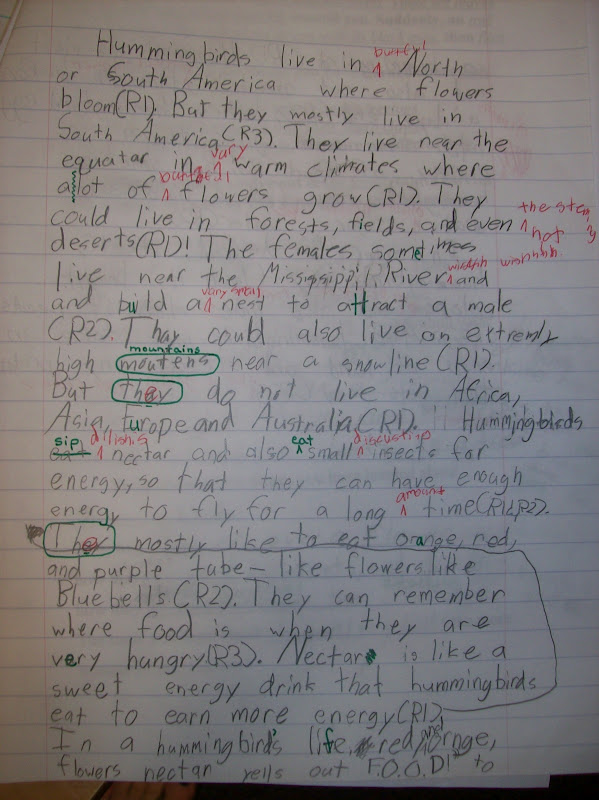 Hummingbirds live in North
or South America where flowers
bloom(R1). But they mostly live in
South America(R3). They live near the
equatar in vary warm climates where
alot of flowers grow(R1). They
could live in forests, fields, and even hot
deserts(R1)! The females sometimes
live near the Mississippi River and
and build a vary small nest to attract a male
(R2). Thay could also live on extremly
high moutens mountains near a snowline(R1).
But they do not live in Africa,
Asia, Europe and Australia(R1). Hummingbirds
eat sip dilishis nectar and also eat small discusting insects for
energy, so that they can have enough
energy to fly for a long amount time(R1&R2).
They mostly like to eat orange, red,
and purple tube-like flowers like
Bluebells(R2). They can remember
where food is when they are
very hungry(R3). Nectar is like a
sweet energy drink that hummingbirds
eat to earn more energy(R1)
In a hummingbird's life, red, ornge,
flowers nectar yells out F.O.O.D! to